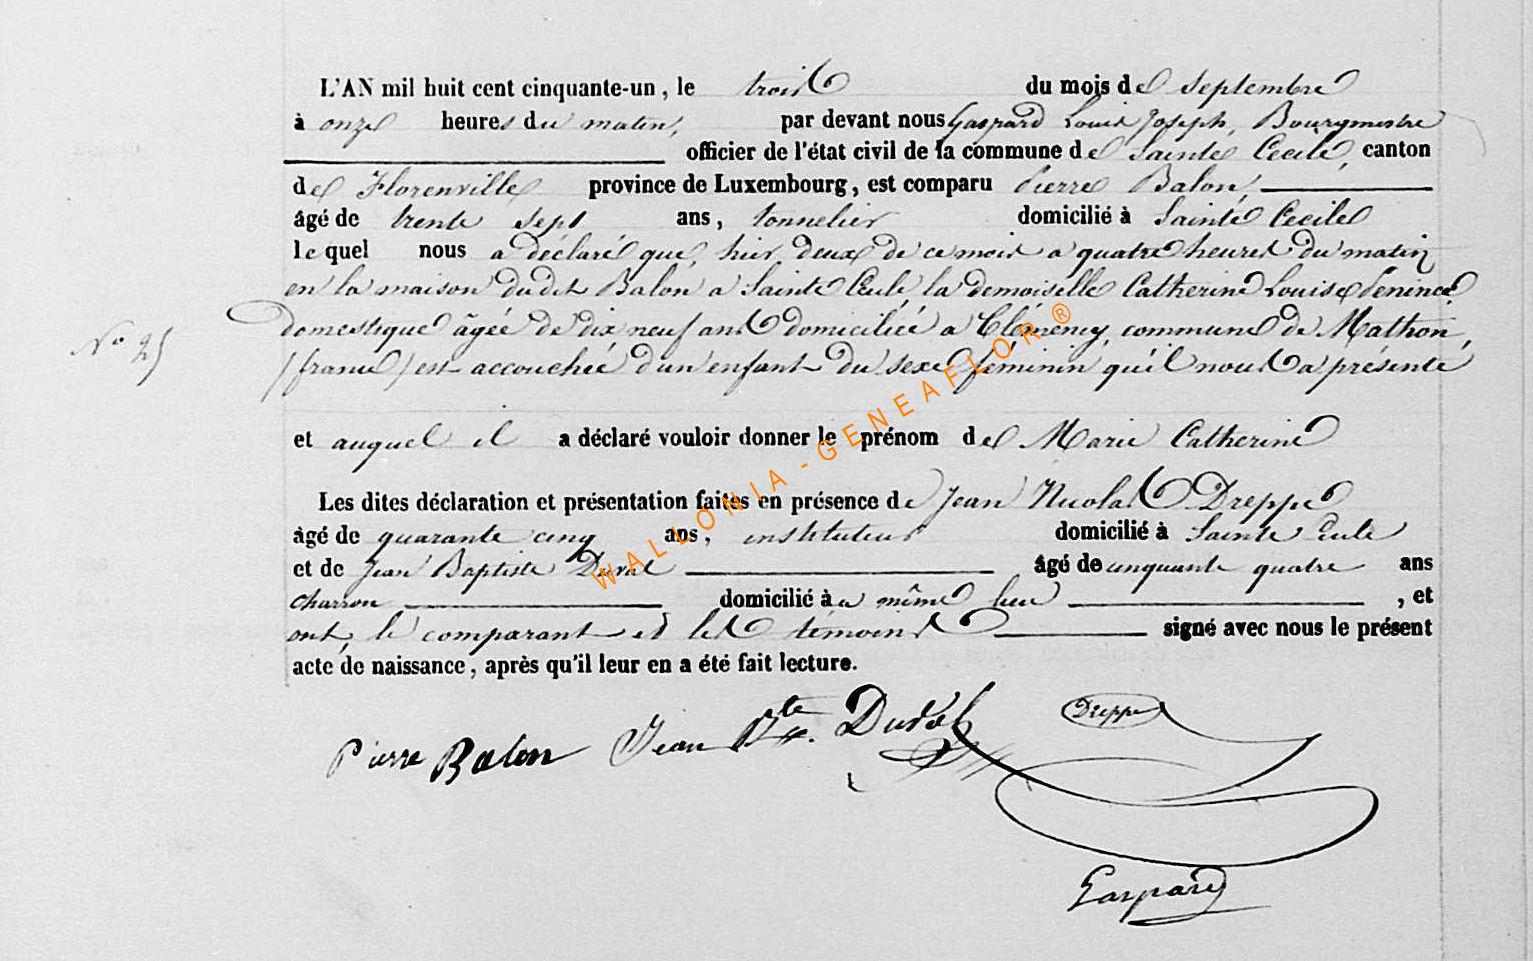 L'AN mil huit cent cinquante-un, le trois du mois de Septembre
à onze heures du matin, par devant nous Gaspard Louis Joseph, Bourgmestre
officier de l'état civil de la commune de Sainte Cecile, canton
de Florenville province de Luxembourg, est comparu Pierre Balon,
âgé de trente sept ans, tonnelier domicilié à Sainte Cecile
lequel nous a déclaré que, hier, deux de ce mois a quatre heures du matin
en la maison dudit Balon a Sainte Cecile la demoiselle Catherine Louise
domestique âgée de dix neuf ans domiciliée a Clémency, commune de Mathon,
N° 25
(france) est accouchée d'un enfant du sexe féminin qu'il nous a présenté
et auquel il a déclaré vouloir donner le prénom de Marie Catherine
Les dites déclaration et présentation faites en présence de Jean Nicolas Dreppe
âgé de quarante cinq ans, instituteur domicilié à Sainte Cecile
et de Jean Baptiste Duval âgé de cinquante quatre ans
charron domicilié à u même lieu , et
ont, le comparant et les témoins signé avec nous le présent
acte de naissance, après qu'il leur en a été fait lecture.
Pierre Balon Jean Bte Duval Dreppe
Gaspard
WALLONIA-GENEAFLOR ®